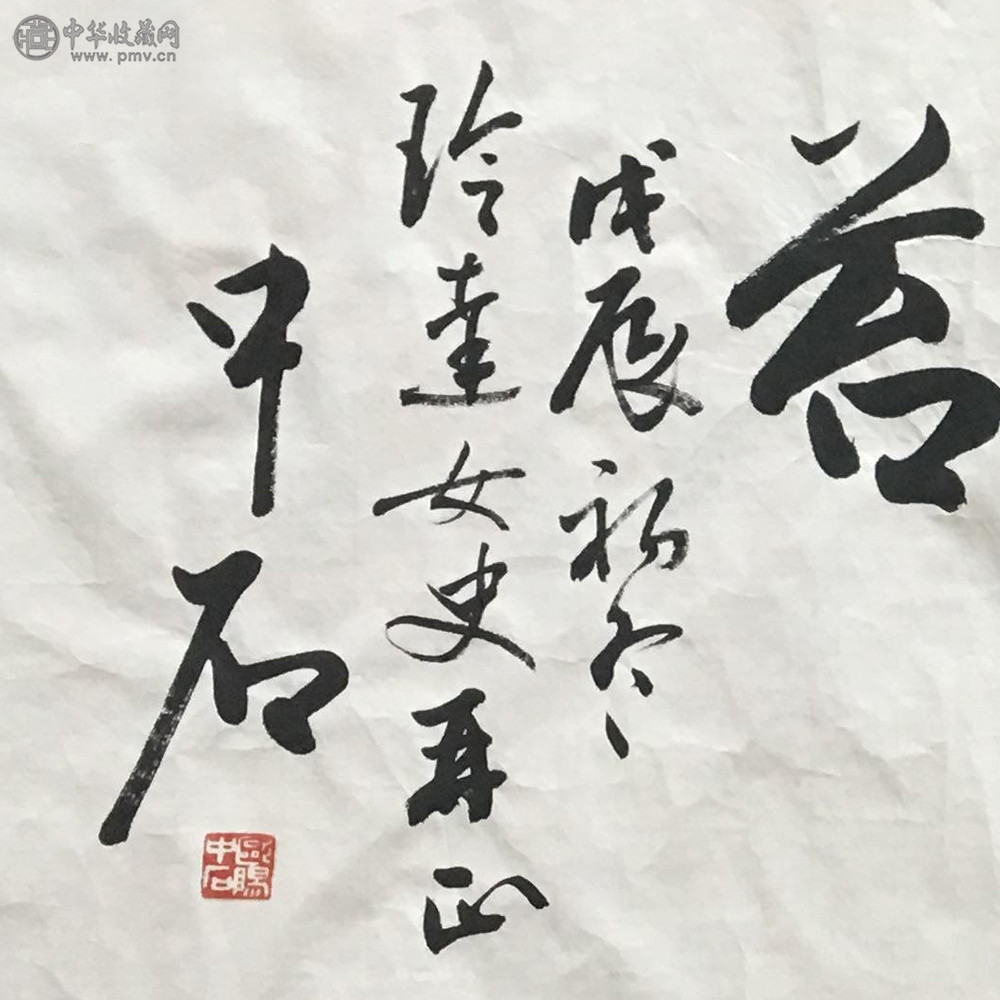 中华收藏网
www.pmv.cn
若
戊辰初冬
玲達女史再正
中石
歐陽中石